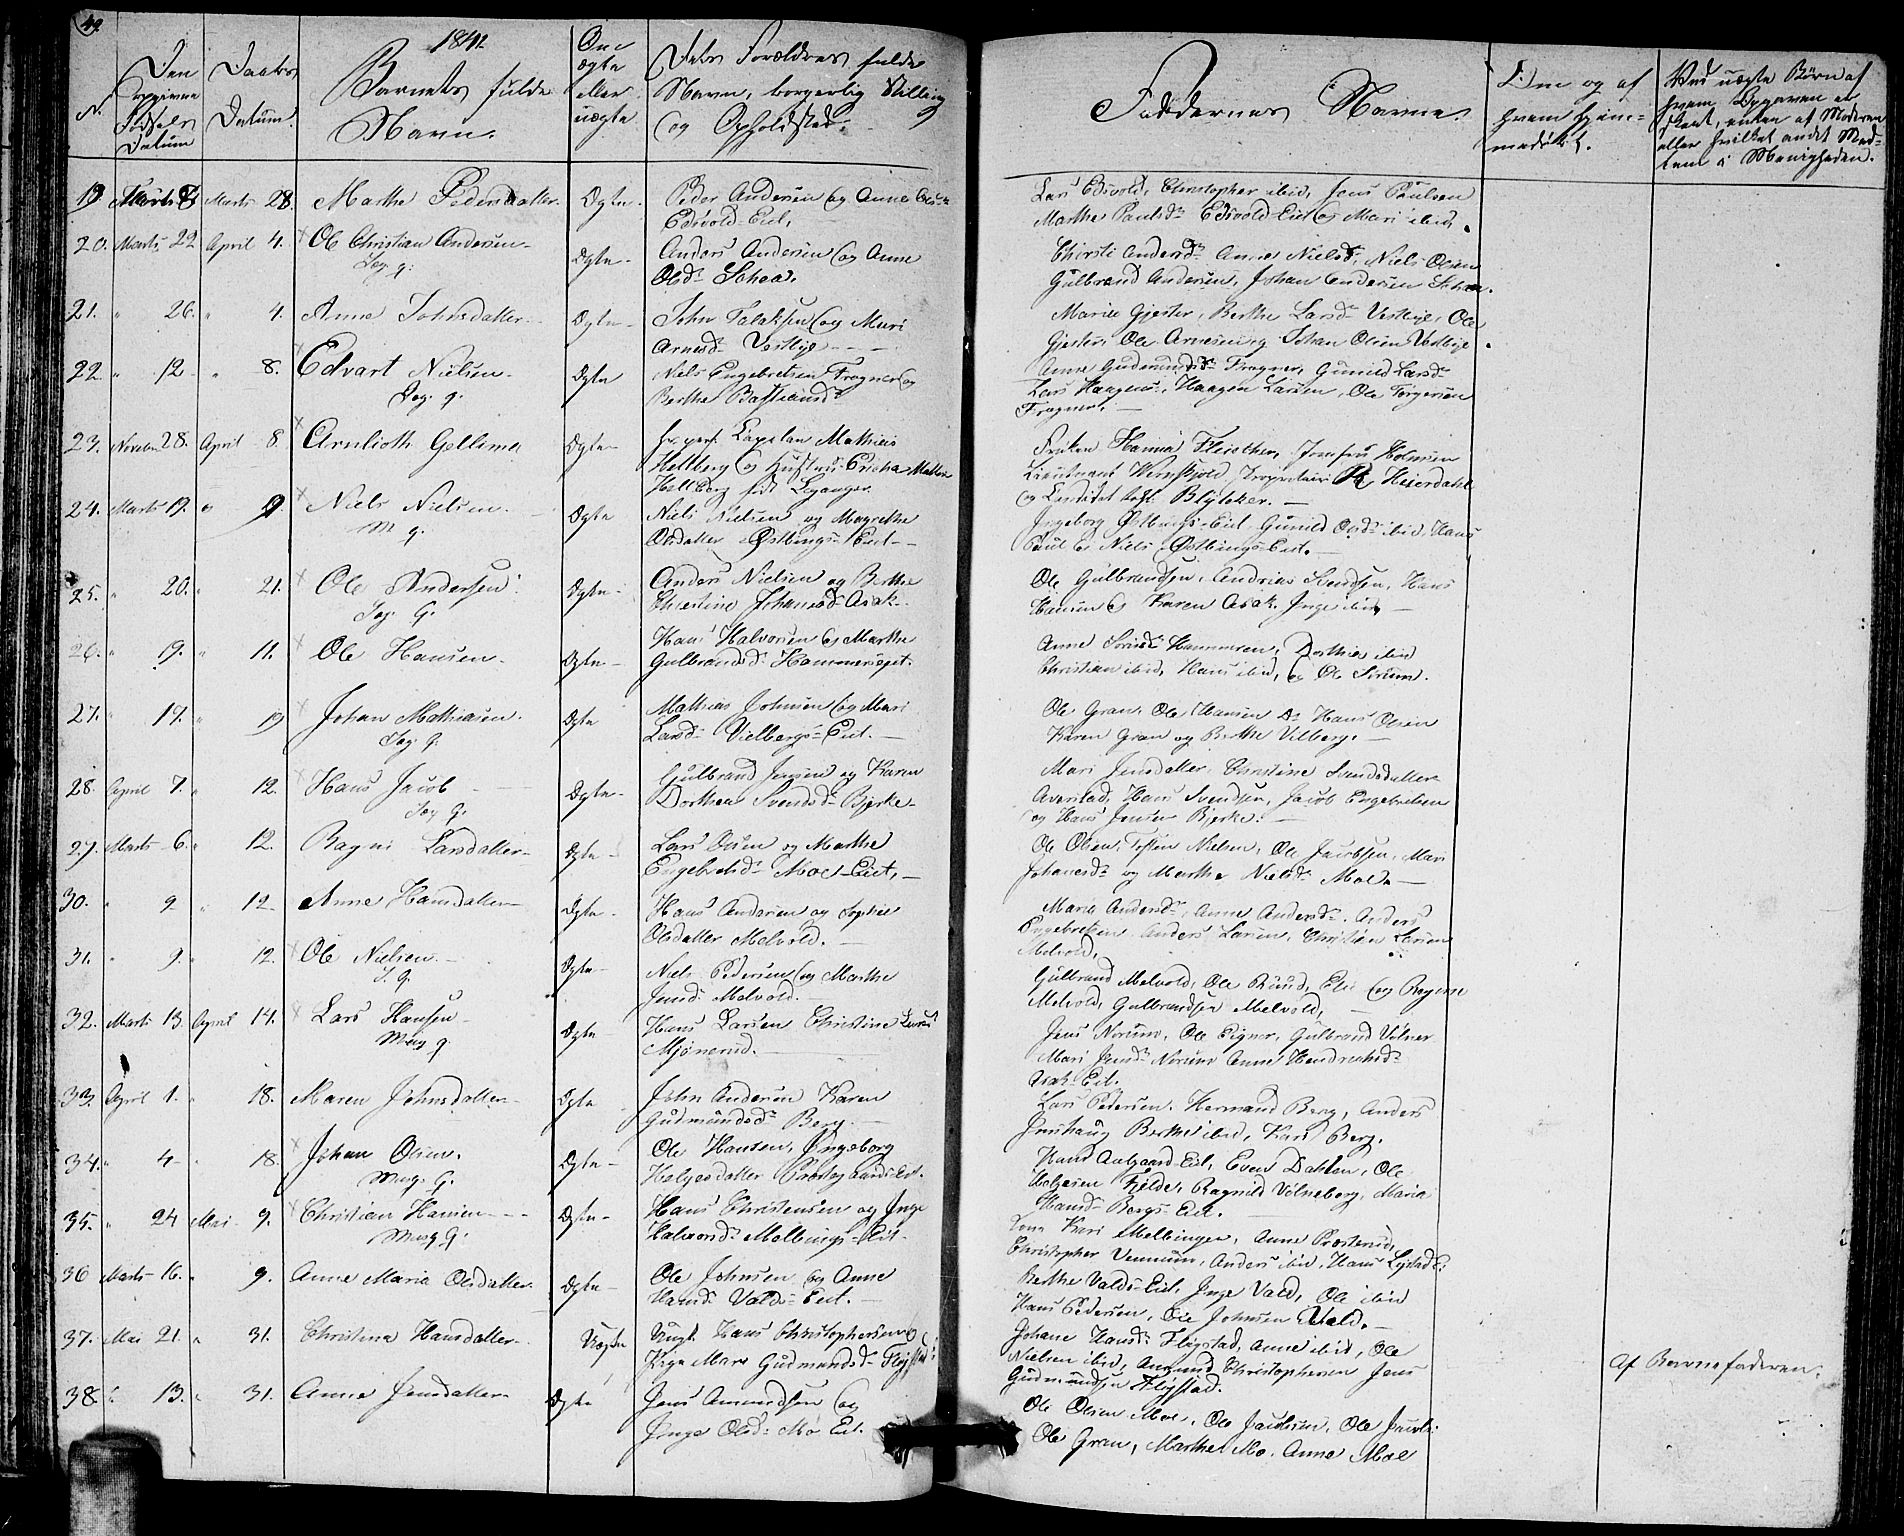 49.
1841
N.
Den opgivne Fødsels Datum
Daabs Datum.
Barnets fulde Navn.
Om ægte eller uægte
Dets Forældres fulde Navn, borgerlig Stilling og Opholdsted.
Faddernes Navne.
Om og af hvem hjemmedøbt.
Ved uægte Børn af hvem Opgaven er skeet, enten af Moderen eller hvilket andet Medlem i Menigheden.
19 Marts Marts 28. Marthe Pedersdatter Ægte Peder Andersen og Anne
Edsvold Eiet,
Lars Edsvold, Christopher ibid, Jens Paulsen
Marthe Paulsd. Edsvold Eie og Mari ibid.
20. Marts 22 April 4. Ole Christian Andersen Ægte Anders Andersen og Anne
Jog. g.
Olsd.
Chirsti Andersd. Anne Nielsd. Niels Olsen
Gulbrand Andersen, Johan Andersen
21. " 26. " 4. Anne Johnsdatter Ægte John Falaksen og Mari
Arnesd. Vestbye
Marie Gjester, Berthe Larsd. Vestbye, Ole
Gjester, Ole Arnesen og Johan Olsen Vestbye
22 " 12 " 8. Edvart Nielsen Ægte Niels Engebretsen Frogner og
Jog. g.
Berthe Bastiansd.
Anne Gudmundsd. Frogner, Gunild Larsd.
Lars Haagens., Haagen Larsen, Ole Torgersen
Frogner.
23. 28. April 8. Arnlioth Gellima Ægte Hr. pers. Capelan Mathias
Hellberg og Hustrue Ericha
Hellberg født Leganger.
Frøken Hanna Fleischer, Jomfru Holmsen
Lieutenant Proprietair Heierdahl
og Candidat
24. Marts 19. " 9. Niels Nielsen Ægte Niels Nielsen og Magrethe
M g.
Olsdatter Østbings-Eiet
Ingeborg Østbings-Eiet, Gunild Olsd. ibid, Hans
Paul og Niels Østbings-Eiet.
25. " 20. " 21. Ole Andersen Ægte Anders Nielsen og Berthe
Jog. G.
Christine Johansd. Asak.
Ole Gulbrandsen, Andreas Svendsen, Hans
Hansen og Karen Asak. Inge ibid,
26. " 9. " 11. Ole Hansen Ægte Hans Halvorsen og Marthe
Gulbrandsd. Hammersøget.
Anne Hammeren, Dorthea ibid
Christian ibid, Hans ibid, og Ole Sørum.
27. " 17. " 19 Johan Mathiasen Ægte Mathias Johnsen og Mari
Jog. G.
Larsd. Vielbergs-Eiet.
Ole Gran. Ole Hansen Do Hans Olsen
Karen Gran og Berthe Vilberg.
28. April 7. " 12. Hans Jacob Ægte Gulbrand Jensen og Karen
Jog G.
Dorthea Svendsd. Bjerke
Mari Jensdatter, Christine Svendsdatter
Averstad, Hans Svendsen, Jacob Engebretsen
og Hans Jensen Bjerke.
29. Marts 6. " 12. Ragni Larsdatter Ægte Lars Olsen og Marthe
Engebretsd. Moe-Eiet,
Ole Olsen, Tosten Nielsen, Ole Jacobsen, Mari
Johanesd. og Marthe Nielsd. Moe.
30. " 9 " 12 Anne Hansdatter Ægte Hans Andersen og Sophie
Olsdatter Melvold.
Maria Andersd., Anne Andersd. Anders
Engebretsen, Anders Larsen, Christian Larsen
Melvold,
31. " 9. " 12. Ole Nielsen Ægte Niels Pedersen og Marthe
J. g.
Jensd. Melvold.
Gulbrand Melvold, Ole Elie og Ragine
Melvold, Gulbrandsen Melvold,
32. Marts 13. April 14. Lars Hansen Ægte Hans Larsen Christine Larsd.
Mag g.
Mjønerud.
Jens Norum, Ole Eigner, Gulbrand Volner
Mari Jensd. Norum Anne Hendrichsd.
Asak-Eiet.
33. April 1. " 18. Maren Johnsdatter Ægte John Andersen Karen
Gudmundsd. Berg.
Lars Pedersen. Hermand Berg, Anders
Berthe ibid, Kari Berg.
34. " 4 " 18. Johan Olsen. Ægte Ole Hansen, Ingeborg
Mag. G.
Helgesdatter Prestegaards-Eiet.
Hans Aalgaard-Eiet, Even Dahlen, Ole
Helgesen Fjelde, Ragnild Volneberg, Maria
Hansd. Bergs-Eiet.
35. " 24 Mai 9. Christian Hansen Ægte Hans Christensen og Inge
Mag G.
Halvorsd. Melbings-Eiet.
Kari Melbingen, Anne Prosterud,
Christopher Vennum, Anders ibid, Hans Lystad.
36 Marts 16. " 9. Anne Maria Olsdatter. Ægte Ole Johnsen og Anne
Hansd. Valds-Eiet.
Berthe Valds-Eiet, Inge Vald, Ole ibid
Hans Pedersen, Ole Johnsen Vald.
37. Mai 21. " 31. Christina Hansdatter Uægte Ungk. Hans Christophersen og
Pige Mari Gudmundsd. Fløjstad
Johane Hansd. Fløgstad, Anne ibid, Ole
Nielsen ibid, Amund Christophersen Jens
Gudmundsen Fløjstad.
Af Barnefaderen.
38. " 13. " 31. Anne Jensdatter Ægte Jens Amundsen og
Inge Olsd. Mo Eiet.
Ole Olsen Moe, Ole Jacobsen, Ole
Ole Gran, Marthe Mo. Anne Moe